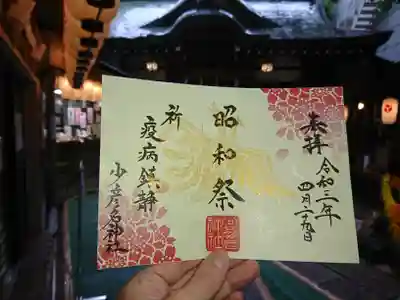 奉拝
令和三年
四月二十九日
昭和祭
祈
疫病鎮静
少彦名神社